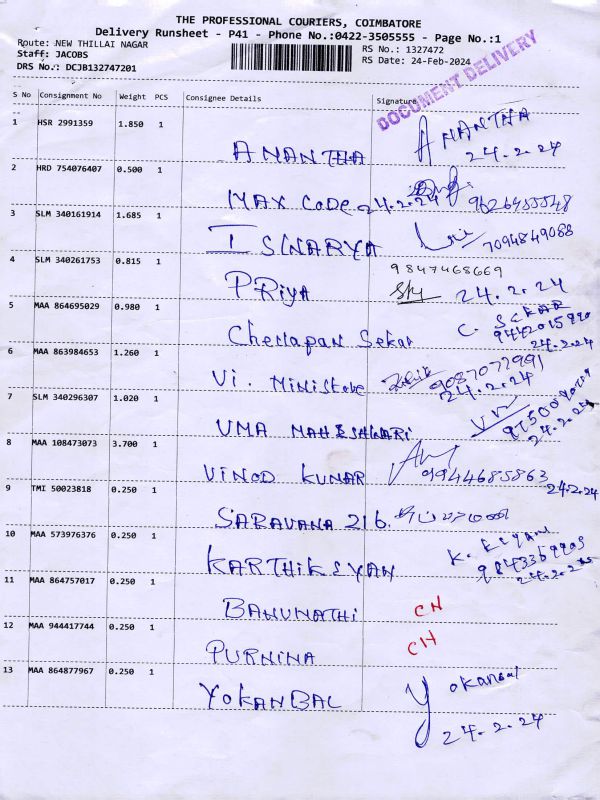 THE PROFESSIONAL COURIERS, COIMBATORE
Delivery Runsheet - P41 - Phone No.:0422-3505555 - Page No.:1
Route: NEW THILLAI NAGAR RS No.: 1327472
Staff: JACOBS RS Date: 24-Feb-2024
DRS No.: DCJB132747201
DOCUMENT DELIVERY
S No Consignment No Weight PCS Consignee Details Signature
1 HSR 2991359 1.850 1 ANANTHA ANANTHA
24.2.24
2 HRD 754076407 0.500 1 MAX CODE 24.2.24 9626455548
3 SLM 340161914 1.685 1 ISWARYA 7094849088
4 SLM 340261753 0.815 1 PRIYA 9847468669
24.2.24
5 MAA 864695029 0.980 1 Chellapan Sekar C. SEKAR
9442015990
24.2.24
6 MAA 863984653 1.260 1 Vi. Ministore 9087072991
24.2.24
7 SLM 340296307 1.020 1 UMA MAHESHWARI
24.2.24
8 MAA 108473073 3.700 1 VINOD KUMAR 9944685863
24.2.24
9 TMI 50023818 0.250 1 SARAVANA 216.
10 MAA 573976376 0.250 1 KARTHIKEYAN K. EEYAN
9843369903
24.2.24
11 MAA 864757017 0.250 1 BANUMATHI CH
12 MAA 944417744 0.250 1 PURNIMA CH
13 MAA 864877967 0.250 1 YOKANBAL Yokanbal
24.2.24